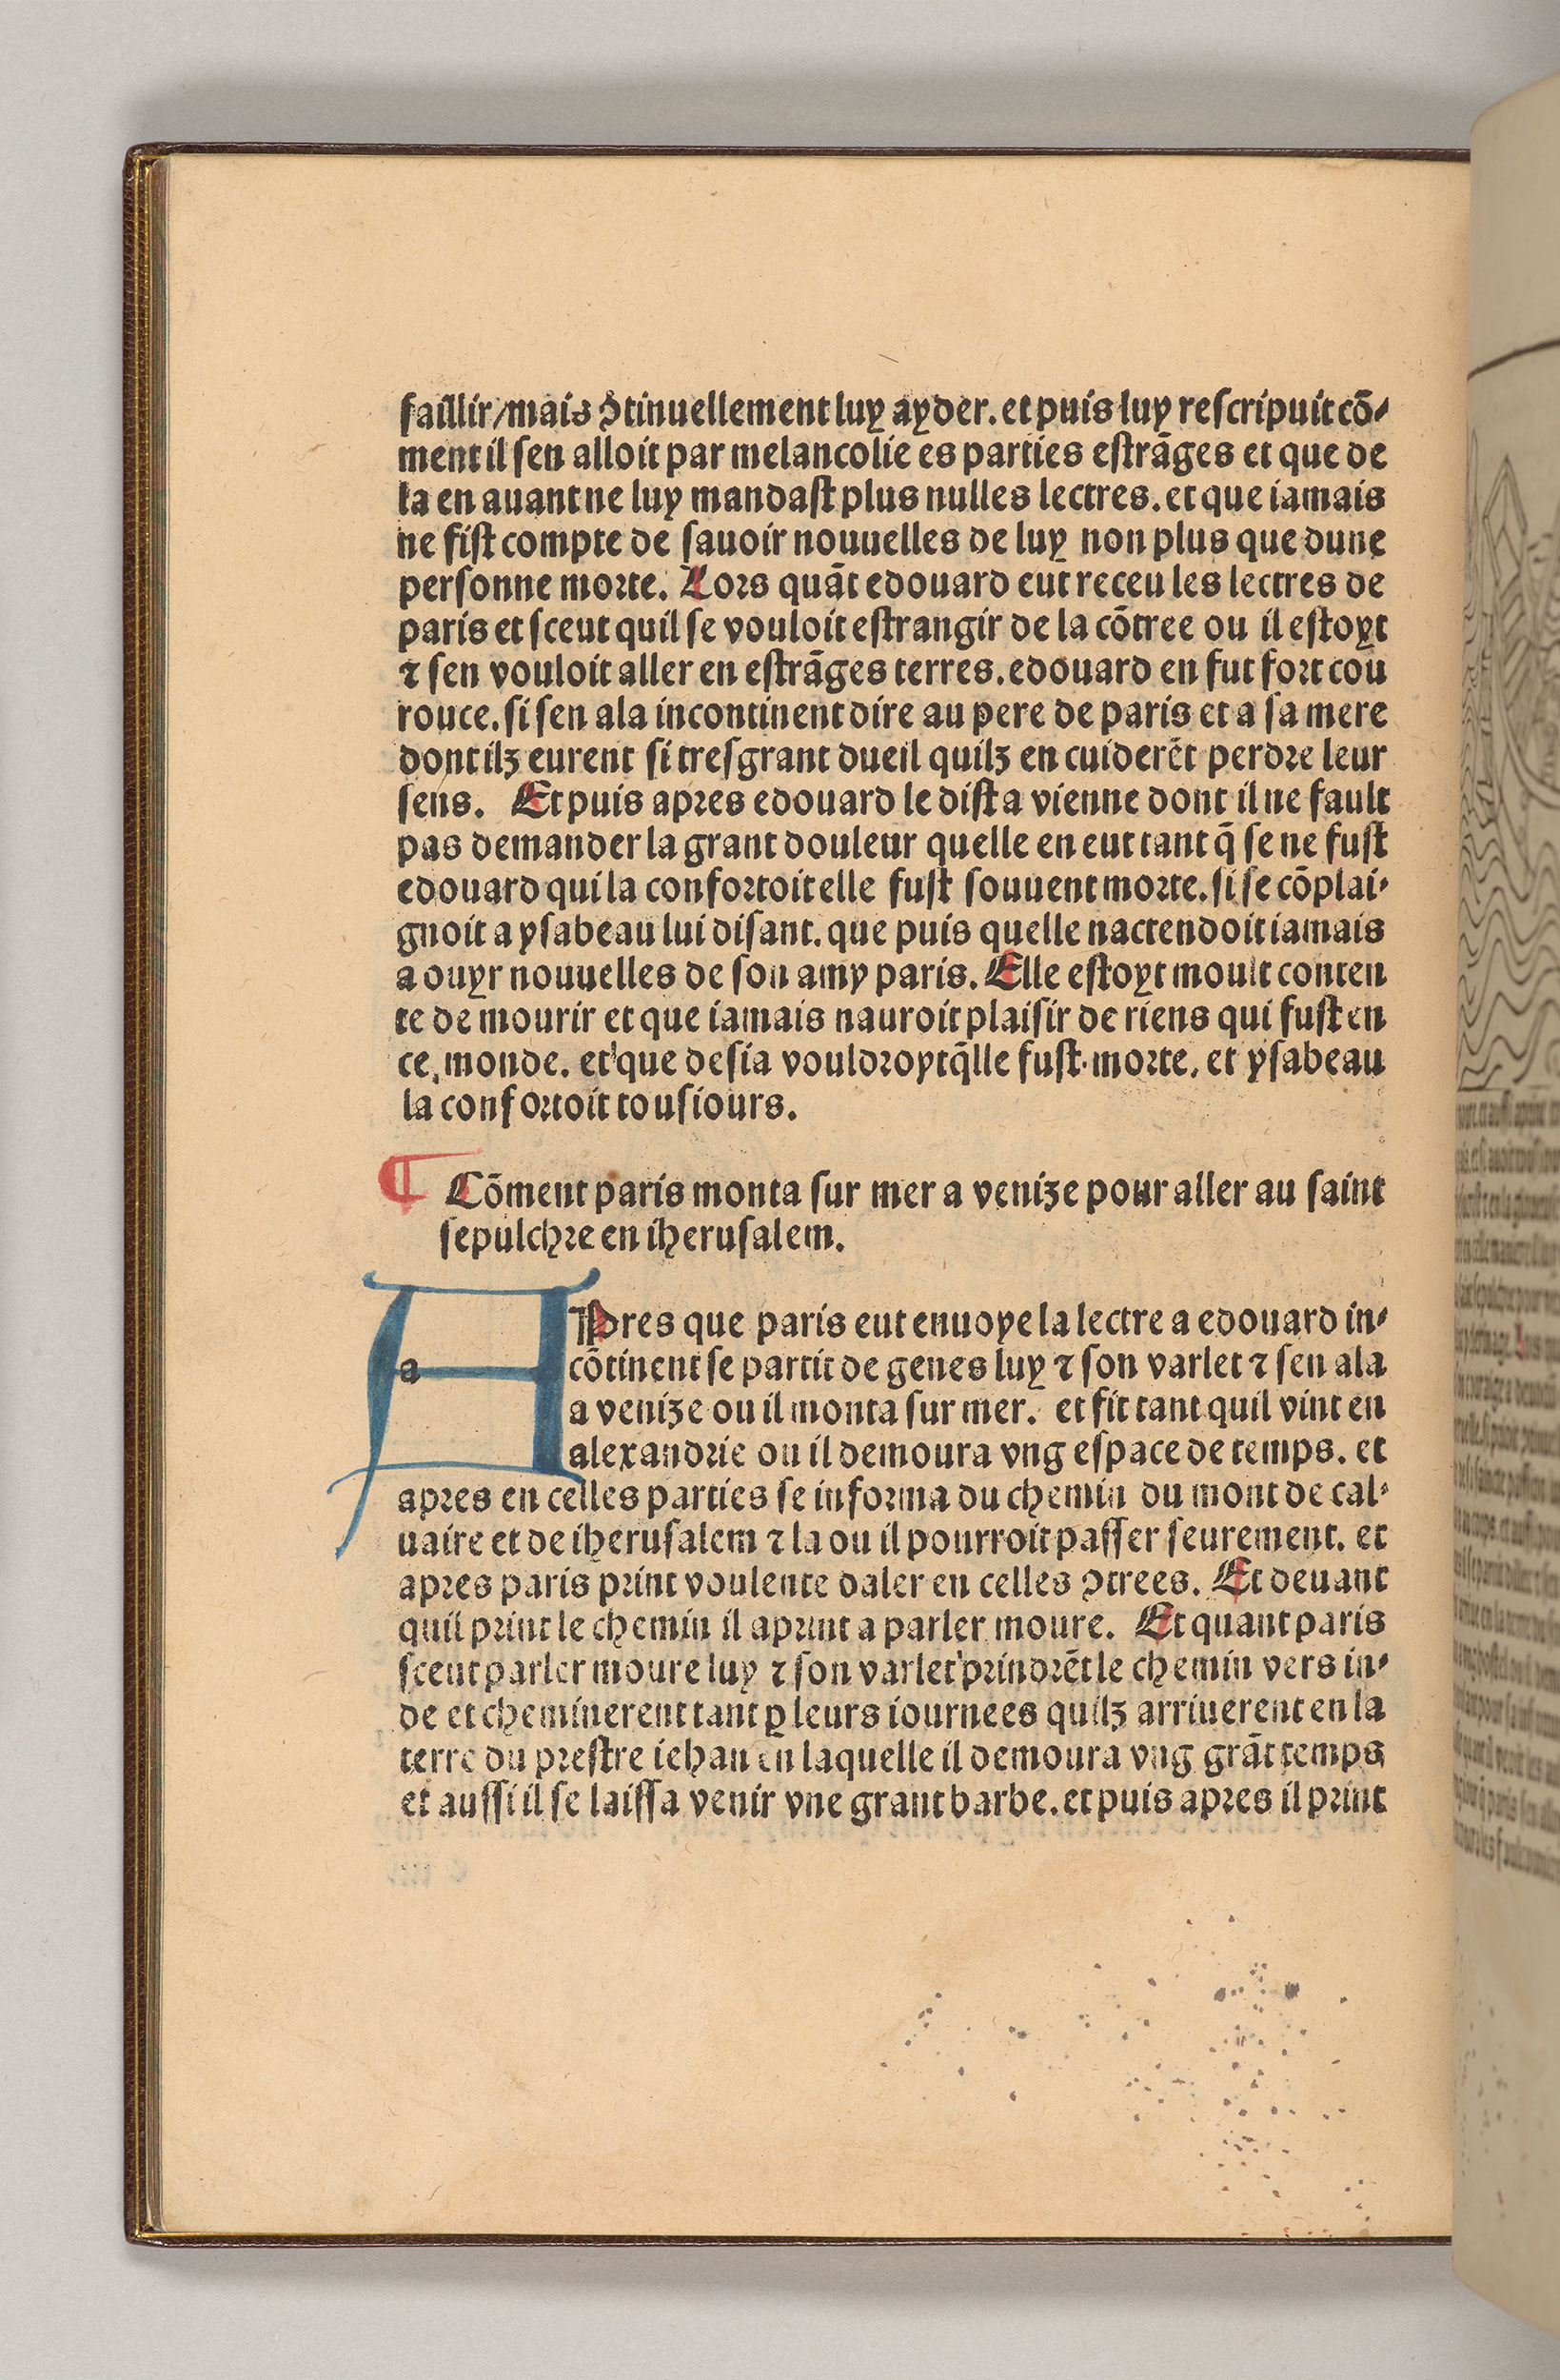 faillir/mais ↄtinuellement luy ayder. et puis luy reſcripuit cō⸗
ment il ſen alloit par melancolie es parties eſtrāges et que de
la en auant ne luy mandaſt plus nulles lectres. et que iamais
ne fiſt compte de ſauoir nouuelles de luy non plus que dune
perſonne moꝛte. Loꝛs quāt edouard eut receu les lectres de
paris et ſceut quil ſe vouloit eſtrangir de la cōtree ou il eſtoyt
⁊ ſen vouloit aller en eſtrāges terres. edouard en fut foꝛt cou
rouce. ſi ſen ala incontinent dire au pere de paris et a ſa mere
dont ilʒ eurent ſi treſgrant dueil quilʒ en cuiderēt perdꝛe leur
ſens. Et puis apꝛes edouard le diſt a vienne dont il ne fault
pas demander la grant douleur quelle en eut tant q̄ ſe ne fuſt
edouard qui la confoꝛtoit elle fuſt ſouuent moꝛte. ſi ſe cōplai⸗
gnoit a yſabeau lui diſant. que puis quelle nactendoit iamais
a ouyr nouuelles de ſon amy paris. Elle eſtoyt moult conten
te de mourir et que iamais nauroit plaiſir de riens qui fuſt en
ce monde. et que deſia vouldꝛoyt q̄lle fuſt moꝛte. et yſabeau
la confoꝛtoit touſiours.
¶ Cōment paris monta ſur mer a veniʒe pour aller au ſaint
ſepulchꝛe en iheruſalem.
APres que paris eut enuoye la lectre a edouard in⸗
a cōtinent ſe partit de genes luy ⁊ ſon varlet ⁊ ſen ala
a veniʒe ou il monta ſur mer. et fit tant quil vint en
alexandꝛie ou il demoura vng eſpace de temps. et
apꝛes en celles parties ſe infoꝛma du chemin du mont de cal⸗
uaire et de iheruſalem ⁊ la ou il pourroit paſſer ſeurement. et
apꝛes paris pꝛint voulente daler en celles ↄtrees. Et deuant
quil pꝛint le chemin il apꝛint a parler moure. Et quant paris
ſceut parler moure luy ⁊ ſon varlet pꝛindꝛēt le chemin vers in⸗
de et cheminerent tant ꝑ leurs iournees quilʒ arriuerent en la
terre du pꝛeſtre iehan en laquelle il demoura vng grāt temps
et auſſi il ſe laiſſa venir vne grant barbe. et puis apꝛes il pꝛint